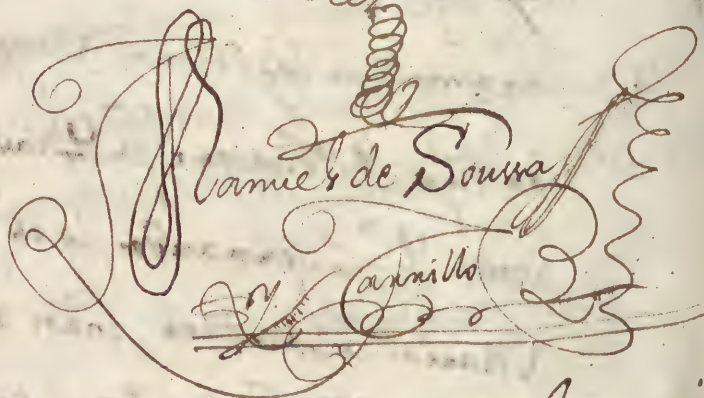 Manuel de Soussa
y Carrillo